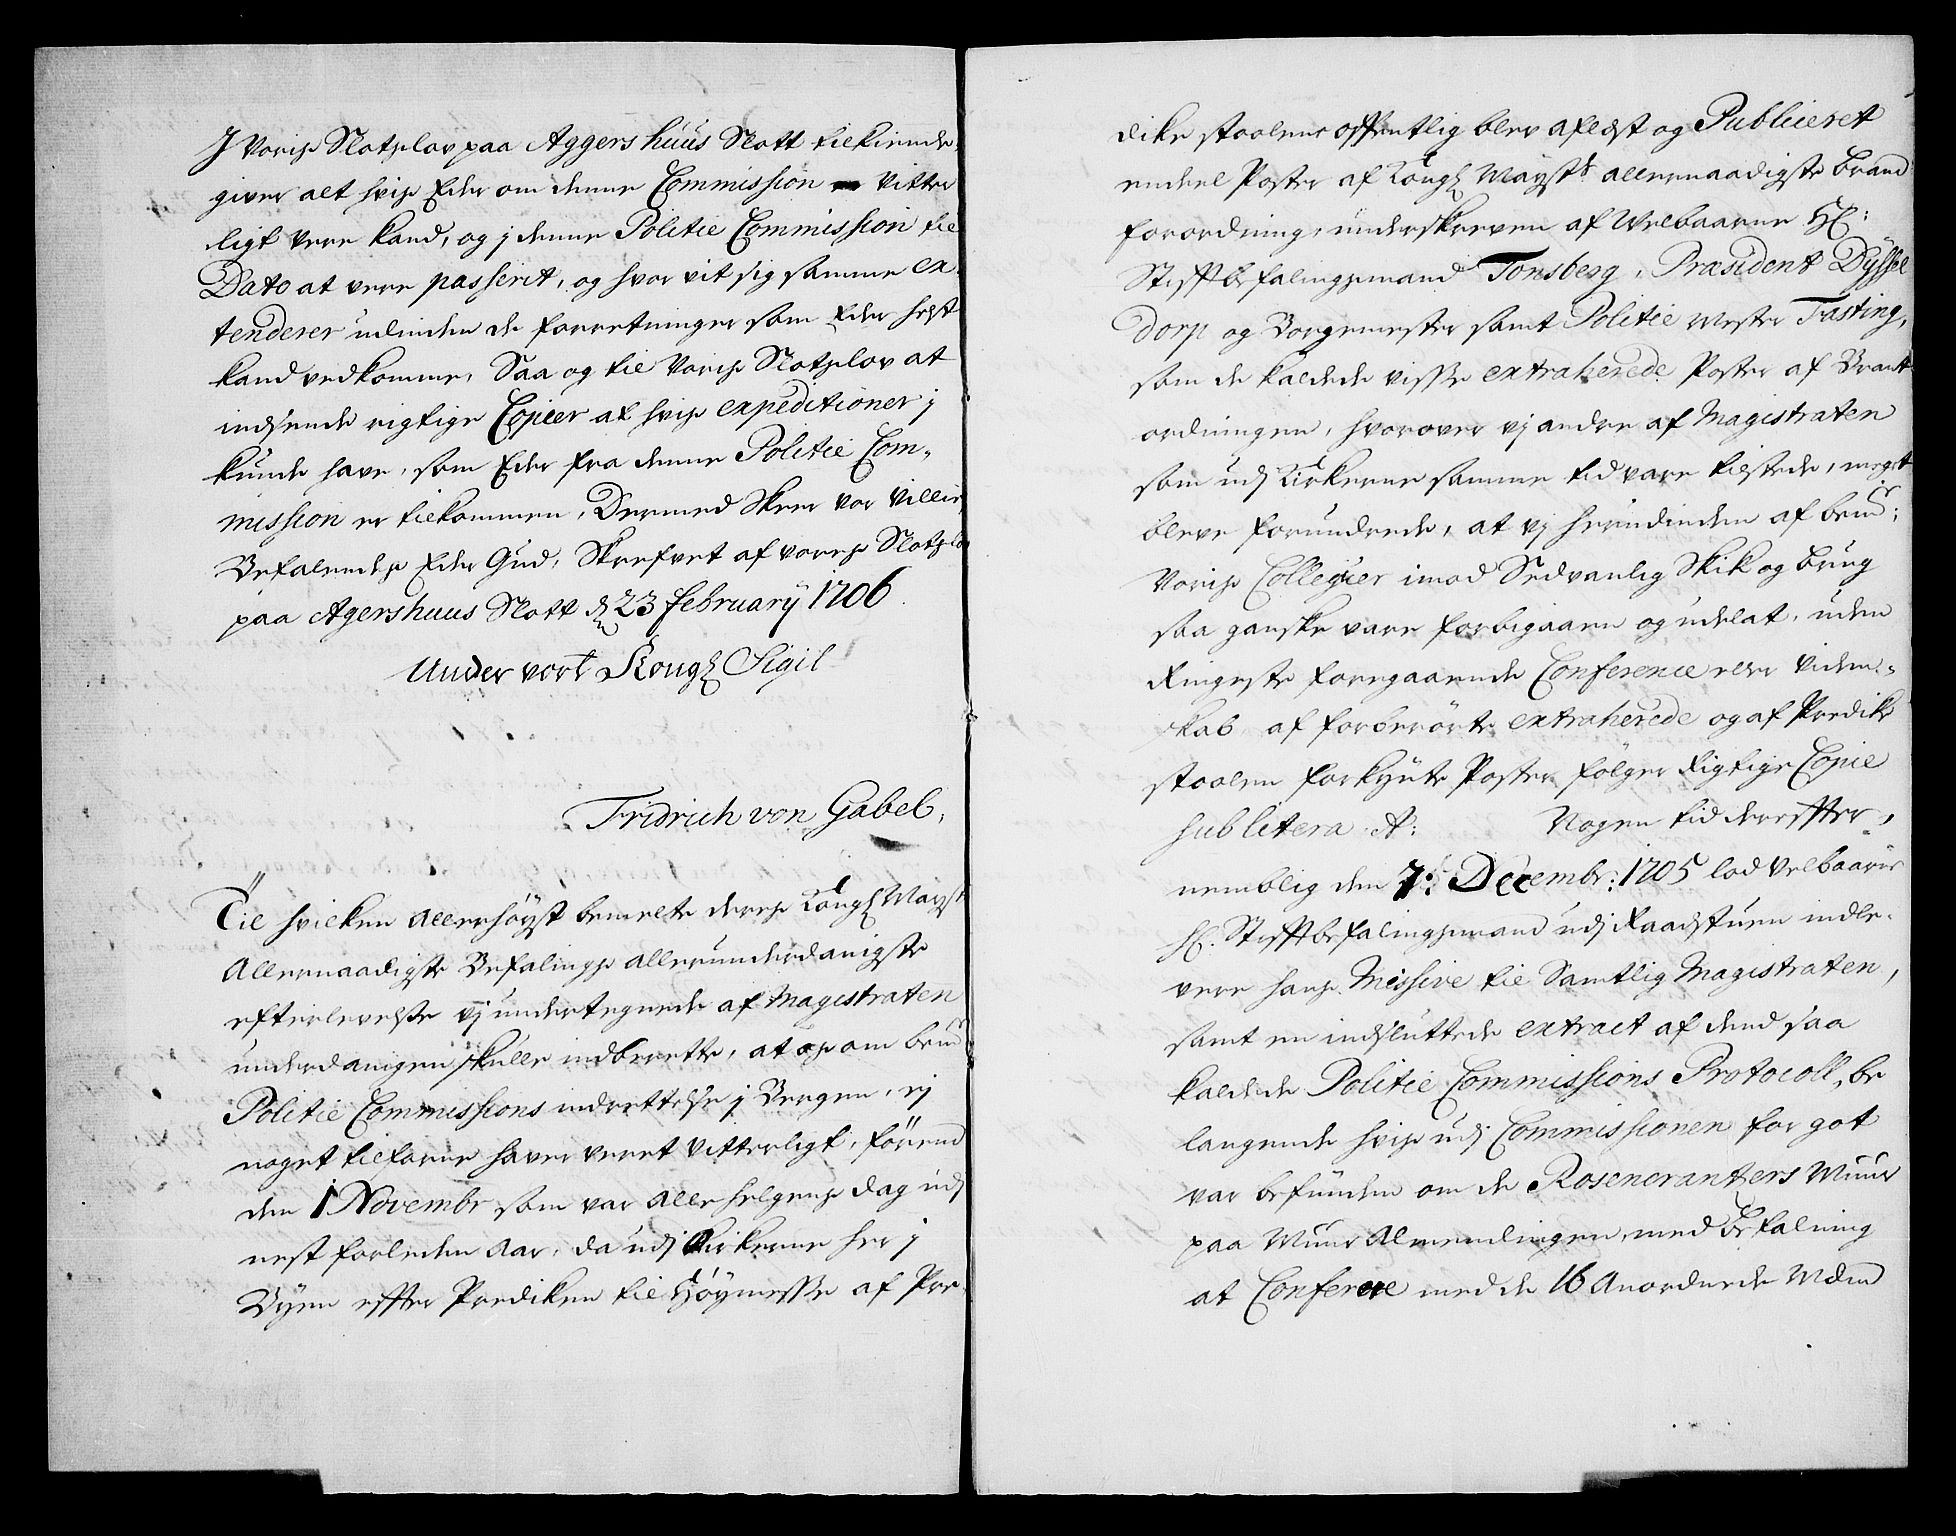 J Voris Slotzlov paa Aggershuus Slott tilkiende
giver alt hvis Eder om denne Commission Vitter
ligt Vere kand, og j denne Politie Commission til
Dato at vere passerit, og hvor vit sig samme ex-
tenderer udinden de forretninger som Eder helst
kand vedkomme, Saa og til Voris Slotzlov at
indsende rigtige Copier af hvis expeditioner j
kunde have, som Eder fra denne Politie Com-
mission er tilkommen, Dermed Skeer vor Villie
Befalendis Eder Gud, Skrefvet af voris Slotzlov
paa Agershuus Slott d 23 february 1706.
Under vort Kongl Sigil
Fridrich von Gabel,
Til hvilken allerhöyst bemelte deris Kongl Mayst
Allernaadigste Befalings allerunderdanigste
efterlevelse vj undertegnede af Magistraten
underdanigen skulle indberette, at os om bem:
Politie Commissions indrettelse j Bergen, ej
noget tilforne haver veret Vitterligt, förend
den 1 Novembr som var Alle helgens dag udj
nest forleden Aar, da udj Kirkerne her j
Byen effter Prediken til Höymesse af Pre-
dike stoelene offentlig blev aflest og Publiceret
endeel Poster af Kongl Maysts allernaadigste brand
forordning, underskreven af Welbaarne Hr:
Stifftbefalingsmand Tonsberg, Præsident Dyssel
dorp og Borgemester samt Politie Mester Fasting,
som de kaldede visse extraherede Poster af Brant
ordningen, hvorover vj andre af Magistraten
som udj Kirkerne samme tid vare tilstede, meget
bleve forundrede, at vj herudinden af bem:
Voris Collegier imod Sedvanlig Skik og brug
saa ganske vare forbigaaen og udelat, uden
Ringeste foregaaende Conference eller Viden-
skab af forberörte extraherede og af Predike
stoelen forkynte Poster fölger Rigtige Copie
sub litera A: Nogen tid dereffter,
nemblig den 7: Decembr: 1705 lod Velbaarne
Hr. Stifftbefalingsmand udj Raadstuen indle-
vere hans Missive til Samtlig Magistraten,
samt en indsluttede extract af dend saa
kaldede Politie Commissions Protocoll, be
langende hvis udj Commissionen for got
var befunden om de Rosencrantzers Muur
paa Muur Almendingen, med Befalning
at Conferere med de 16 Anordnede Mænd